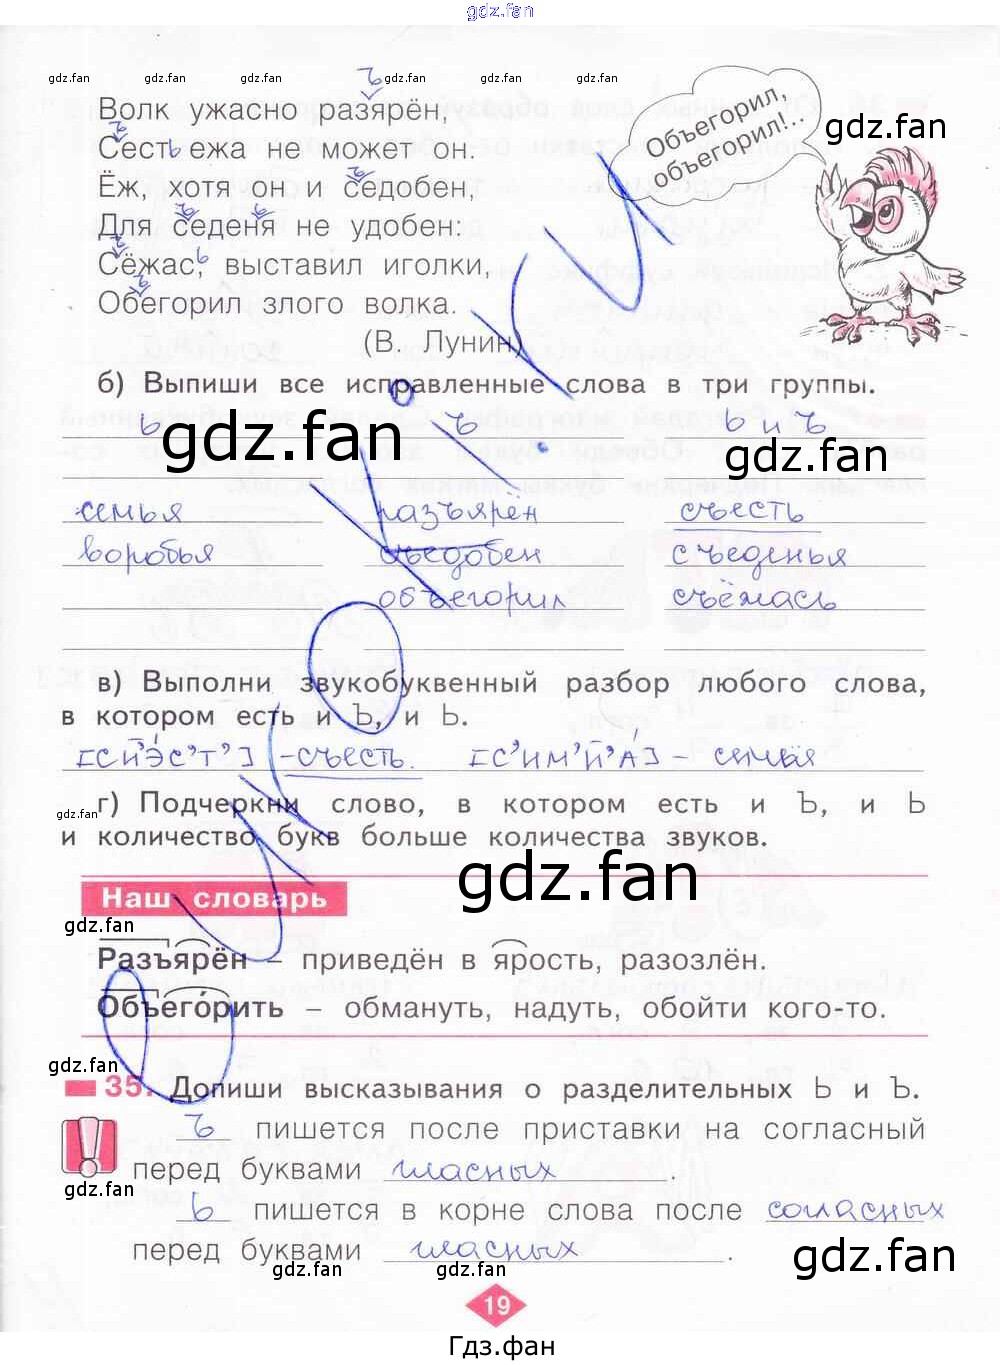 gdz.fan
gdz.fan gdz.fan gdz.fan gdz.fan gdz.fan
ъ
Волк ужасно разярён,
Сест ь ежа не может он.
Ёж, хотя он и седобен,
Для седеня не удобен:
Сёжас, ь выставил иголки,
Обегорил злого волка.
(В. Лунин)
Объегорил,
объегорил!..
gdz.fan
б) Выпиши все исправленные слова в три группы.
ь ъ ь и ъ
gdz.fan gdz.fan
семья разъярён съесть
воробья съедобен съеденья
объегорил съёжась
в) Выполни звукобуквенный разбор любого слова,
в котором есть и Ъ, и Ь.
[сй'эс'т'] - съесть. [с'им'й'а] - семья
gdz.fan
г) Подчеркни слово, в котором есть и Ъ, и Ь
и количество букв больше количества звуков.
gdz.fan
Наш словарь
gdz.fan
Разъярён – приведён в ярость, разозлён.
Объего́рить – обмануть, надуть, обойти кого-то.
gdz.fan
35. Допиши высказывания о разделительных Ь и Ъ.
ъ пишется после приставки на согласный
перед буквами гласных.
gdz.fan
ь пишется в корне слова после согласных
перед буквами гласных.
gdz.fan gdz.fan gdz.fan
19
Гдз.фан